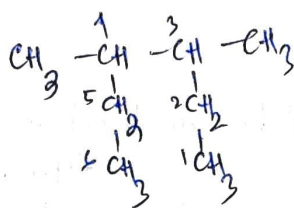 4 3
CH3 -CH -CH -CH3
5 CH2 2 CH2
6 CH3 1 CH3